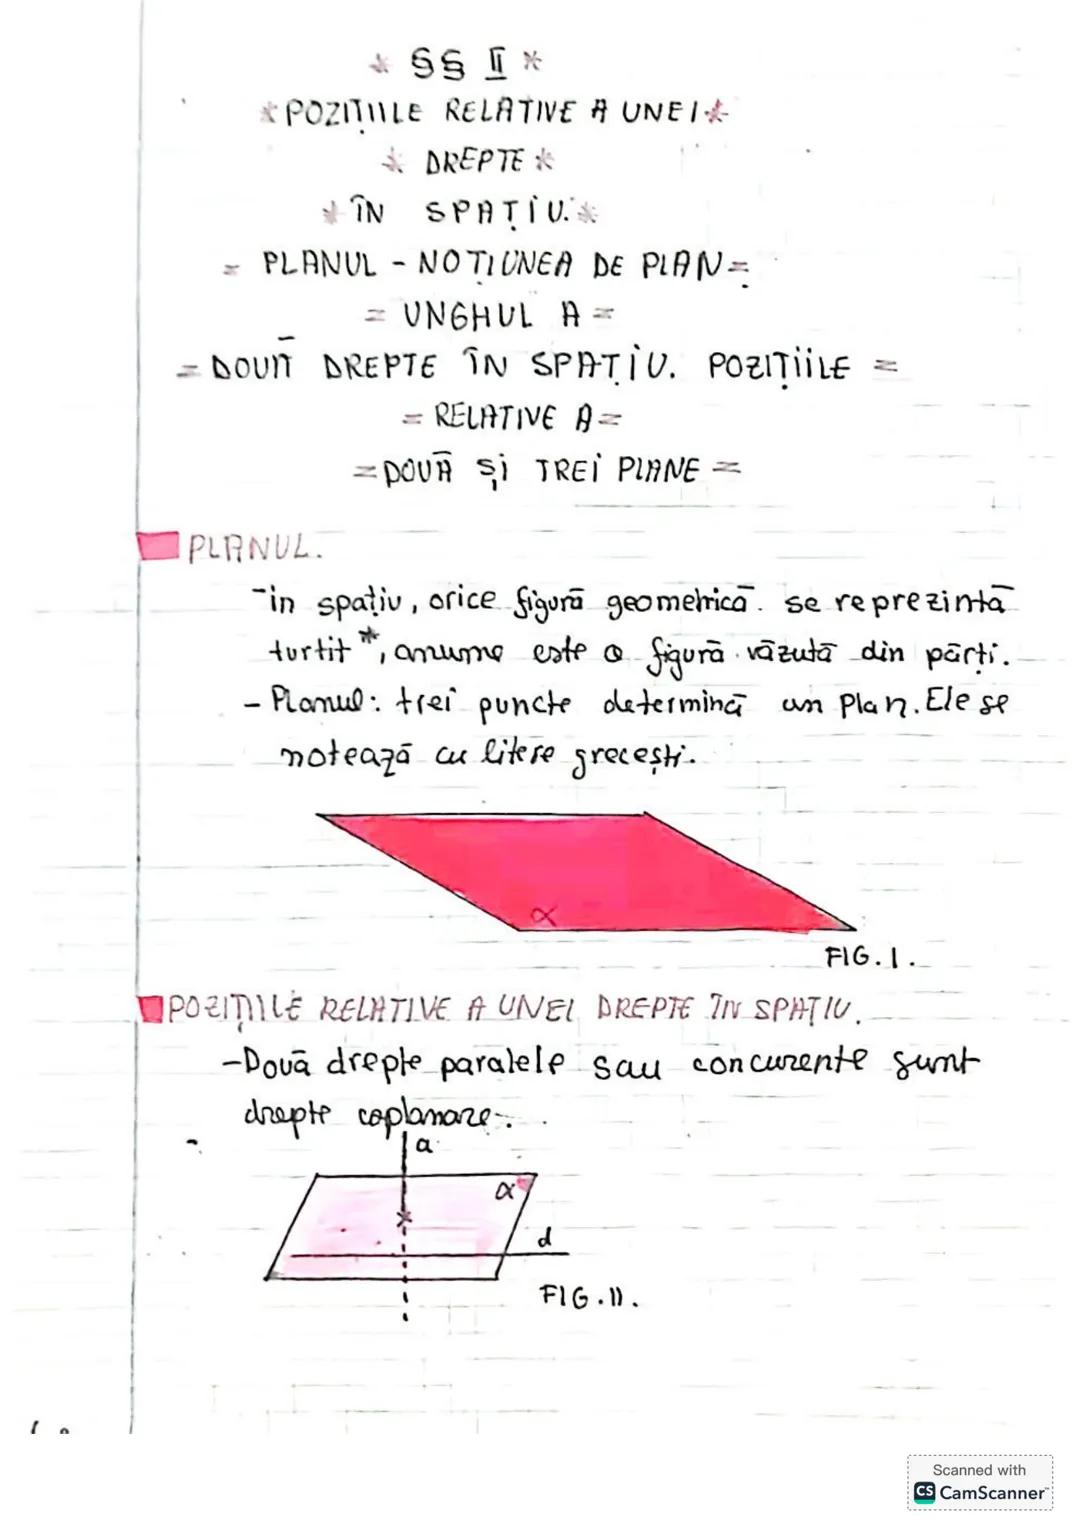 * §§ II *
* POZIȚIILE RELATIVE A UNEI *
* DREPTE *
* ÎN SPAȚIU. *
= PLANUL - NOȚIUNEA DE PLAN =
= UNGHUL A =
= DOUĂ DREPTE ÎN SPAȚIU. POZIȚIILE =
= RELATIVE A =
= DOUĂ ȘI TREI PLANE =
PLANUL.
- în spațiu, orice figură geometrică se reprezintă
turtit *, anume este o figură văzută din părți.
- Planul: trei puncte determină un plan. Ele se
notează cu litere grecești.
α
FIG. I.
POZIȚIILE RELATIVE A UNEI DREPTE ÎN SPAȚIU.
- Două drepte paralele sau concurente sunt
drepte coplanare.
a
α
d
FIG. II.
Scanned with
CS CamScanner